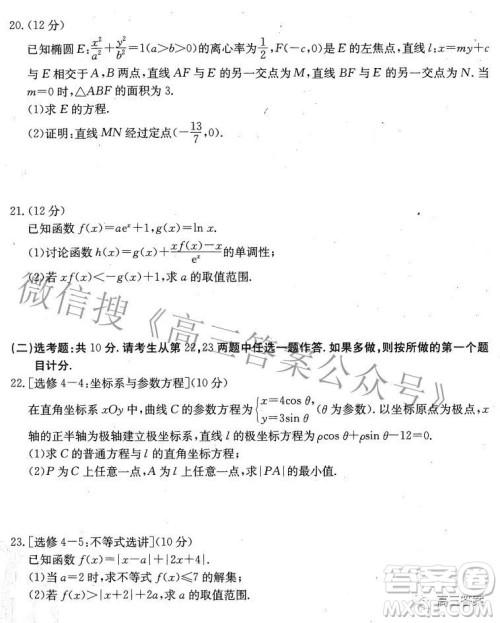 20.(12 分)
已知椭圆 E: x²/a² + y²/b² =1(a>b>0)的离心率为 1/2, F(-c,0)是 E 的左焦点, 直线 l: x=my+c
与 E 相交于 A,B 两点, 直线 AF 与 E 的另一交点为 M, 直线 BF 与 E 的另一交点为 N. 当
m=0 时, △ABF 的面积为 3.
(1)求 E 的方程.
(2)证明: 直线 MN 经过定点(-13/7,0).
21.(12 分)
已知函数 f(x)=aeˣ+1, g(x)=ln x.
(1)讨论函数 h(x)=g(x)+ (xf(x)-x)/eˣ 的单调性;
(2)若 xf(x)<-g(x)+1, 求 a 的取值范围.
(二)选考题: 共 10 分. 请考生从第 22,23 两题中任选一题作答. 如果多做, 则按所做的第一个题
目计分.
22.[选修 4-4: 坐标系与参数方程](10 分)
在直角坐标系 xOy 中, 曲线 C 的参数方程为 {x=4cos θ, y=3sin θ (θ 为参数). 以坐标原点为极点, x
轴的正半轴为极轴建立极坐标系, 直线 l 的极坐标方程为 ρcos θ+ρsin θ-12=0.
(1)求 C 的普通方程与 l 的直角坐标方程;
(2)P 为 C 上任意一点, A 为 l 上任意一点, 求|PA|的最小值.
23.[选修 4-5: 不等式选讲](10 分)
已知函数 f(x)=|x-a|+|2x+4|.
(1)当 a=2 时, 求不等式 f(x)≤7 的解集;
(2)若 f(x)>|x+2|+2a, 求 a 的取值范围.
微信搜《高三答案公众号》
答案圈
MXQE.COM
高三答案